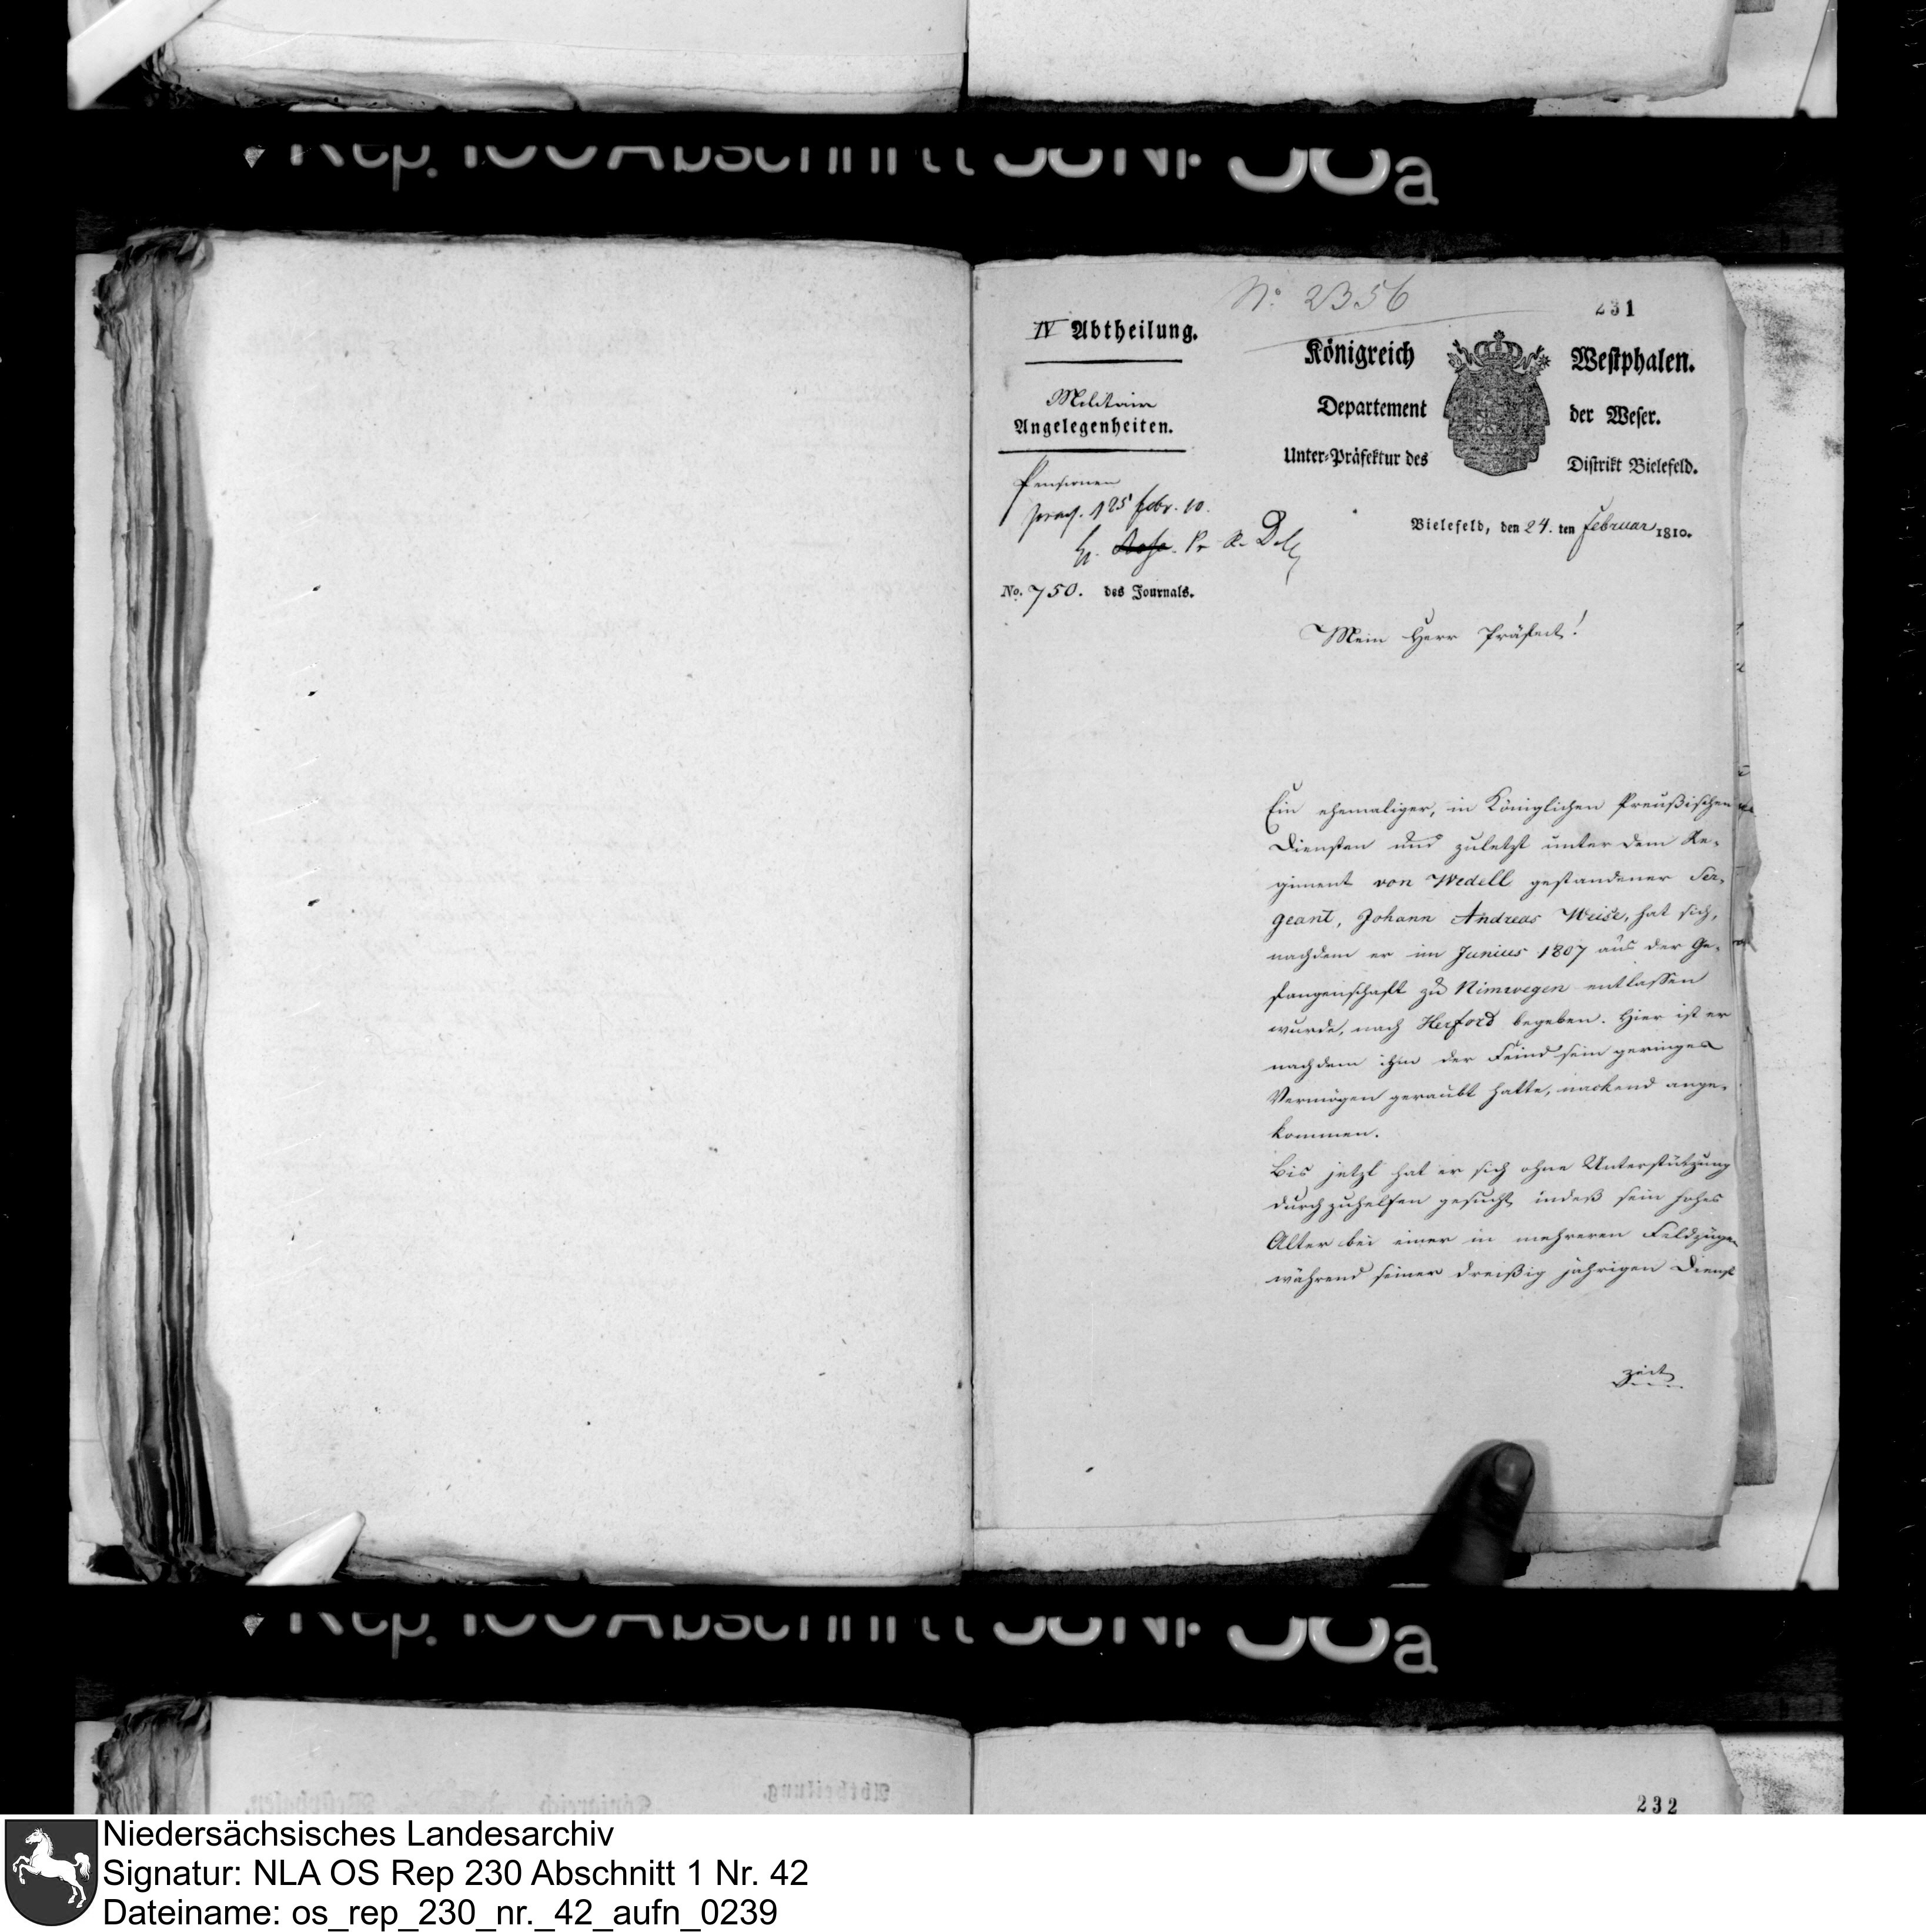 № 2356
231
IV Abtheilung.
Militair
Angelegenheiten.
Pensionen
125 febr. 10.
No. 750. des Journals.
Königreich Westphalen.
Departement der Weser.
Unter-Präfektur des Distrikt Bielefeld.
Bielefeld, den 24. ten Februar 1810.
Mein Herr Präfect!
Ein ehemaliger, in Königlichen Preußischen
Diensten und zuletzt unter dem Re-
giment von Wedell gestandener Ser-
geant, Johann Andreas Weise, hat sich,
nachdem er im Junius 1807 aus der Ge-
fangenschaft zu Nimwegen entlassen
wurde, nach Herford begeben. Hier ist er
nachdem ihm der Feind sein geringes
Vermögen geraubt hatte, nackend ange-
kommen.
Bis jetzt hat er sich ohne Unterstützung
durchzuhelfen gesucht, indeß sein hohes
Alter bei einer in mehreren Feldzügen
während seiner dreißig jährigen Dienst
zeit
232
Niedersächsisches Landesarchiv
Signatur: NLA OS Rep 230 Abschnitt 1 Nr. 42
Dateiname: os_rep_230_nr._42_aufn_0239